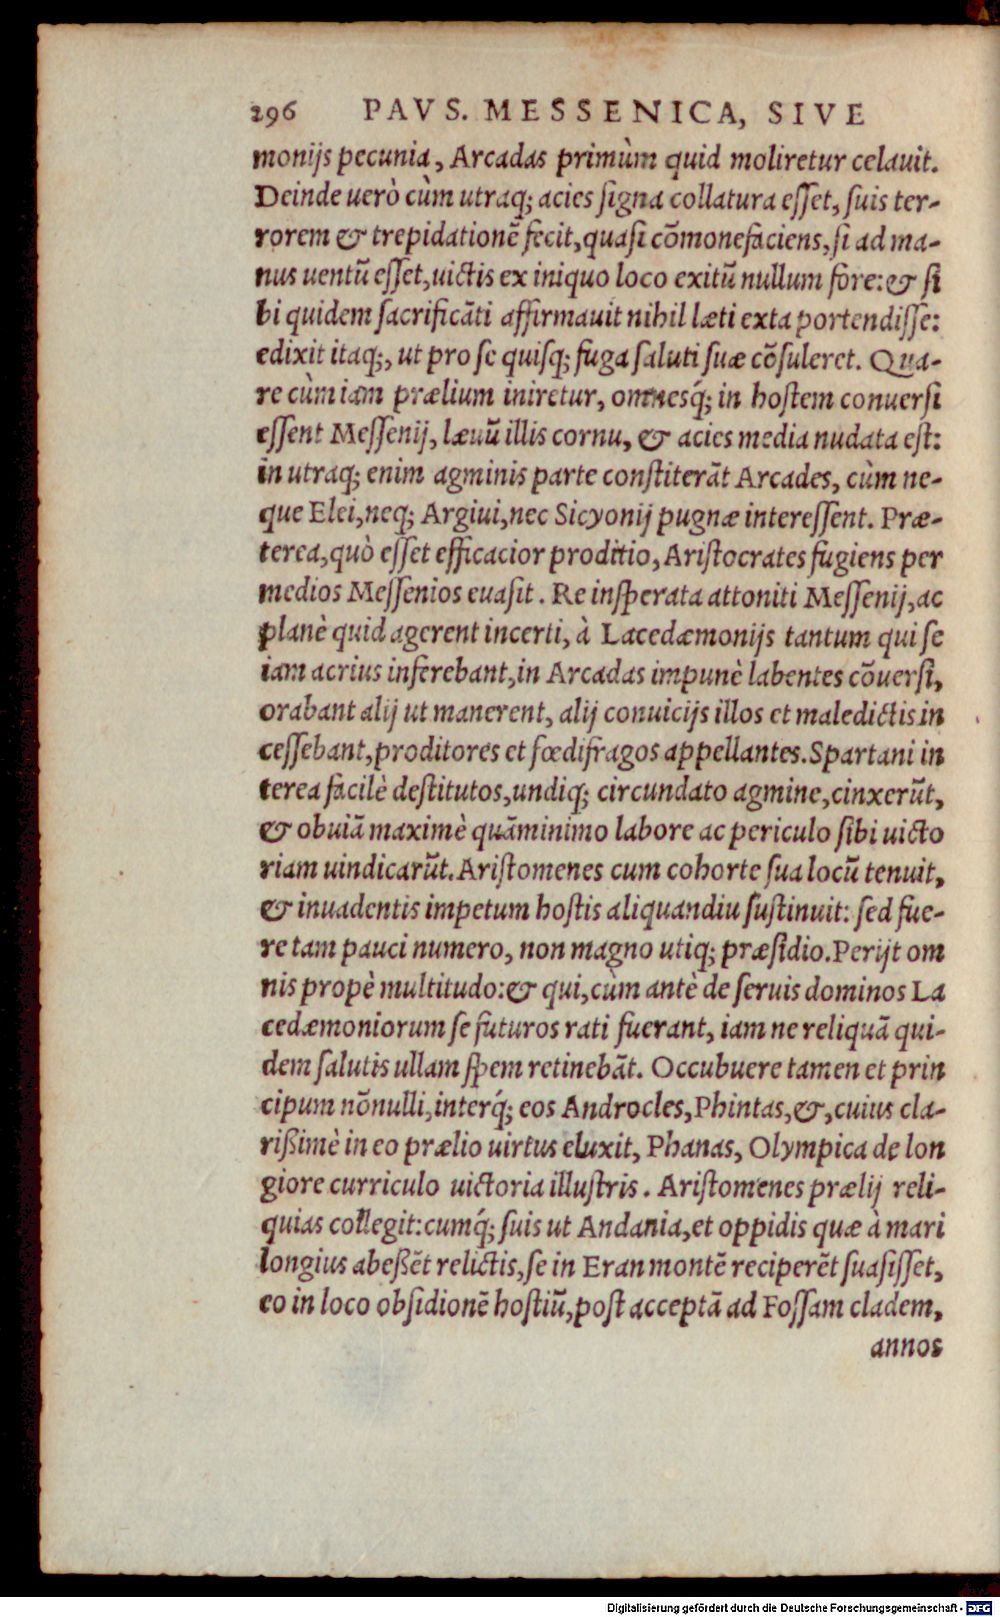 296 PAVS. MESSENICA, SIVE
monijs pecunia, Arcadas primùm quid moliretur celauit.
Deinde uerò cùm utraq; acies signa collatura esset, suis ter-
rorem & trepidationē fecit, quasi cōmonefaciens, si ad ma-
nus uentū esset, uictis ex iniquo loco exitū nullum fore: & si
bi quidem sacrificāti affirmauit nihil læti exta portendisse:
edixit itaq;, ut pro se quisq; fuga saluti suæ cōsuleret. Qua-
re cùm iam prælium iniretur, omnesq́; in hostem conuersi
essent Messenij, læuū illis cornu, & acies media nudata est:
in utraq; enim agminis parte constiterāt Arcades, cùm ne-
que Elei, neq; Argiui, nec Sicyonij pugnæ interessent. Præ-
terea, quò esset efficacior proditio, Aristocrates fugiens per
medios Messenios euasit. Re insperata attoniti Messenij, ac
planè quid agerent incerti, à Lacedæmonijs tantum qui se
iam acrius inferebant, in Arcadas impunè labentes cōuersi,
orabant alij ut manerent, alij conuicijs illos et maledictis in
cessebant, proditores et fœdifragos appellantes. Spartani in
terea facilè destitutos, undiq; circundato agmine, cinxerūt,
& obuiā maximè quāminimo labore ac periculo sibi uicto
riam uindicarūt. Aristomenes cum cohorte sua locū tenuit,
& inuadentis impetum hostis aliquandiu sustinuit: sed fue-
re tam pauci numero, non magno utiq; præsidio. Perijt om
nis propè multitudo: & qui, cùm antè de seruis dominos La
cedæmoniorum se futuros rati fuerant, iam ne reliquā qui-
dem salutis ullam spem retinebāt. Occubuere tamen et prin
cipum nōnulli, interq́; eos Androcles, Phintas, &, cuius cla-
rißimè in eo prælio uirtus eluxit, Phanas, Olympica de lon
giore curriculo uictoria illustris. Aristomenes prælij reli-
quias collegit: cumq́; suis ut Andania, et oppidis quæ à mari
longius abeßēt relictis, se in Eran montē reciperēt suasisset,
eo in loco obsidionē hostiū, post acceptā ad Fossam cladem,
annos
Digitalisierung gefördert durch die Deutsche Forschungsgemeinschaft - DFG